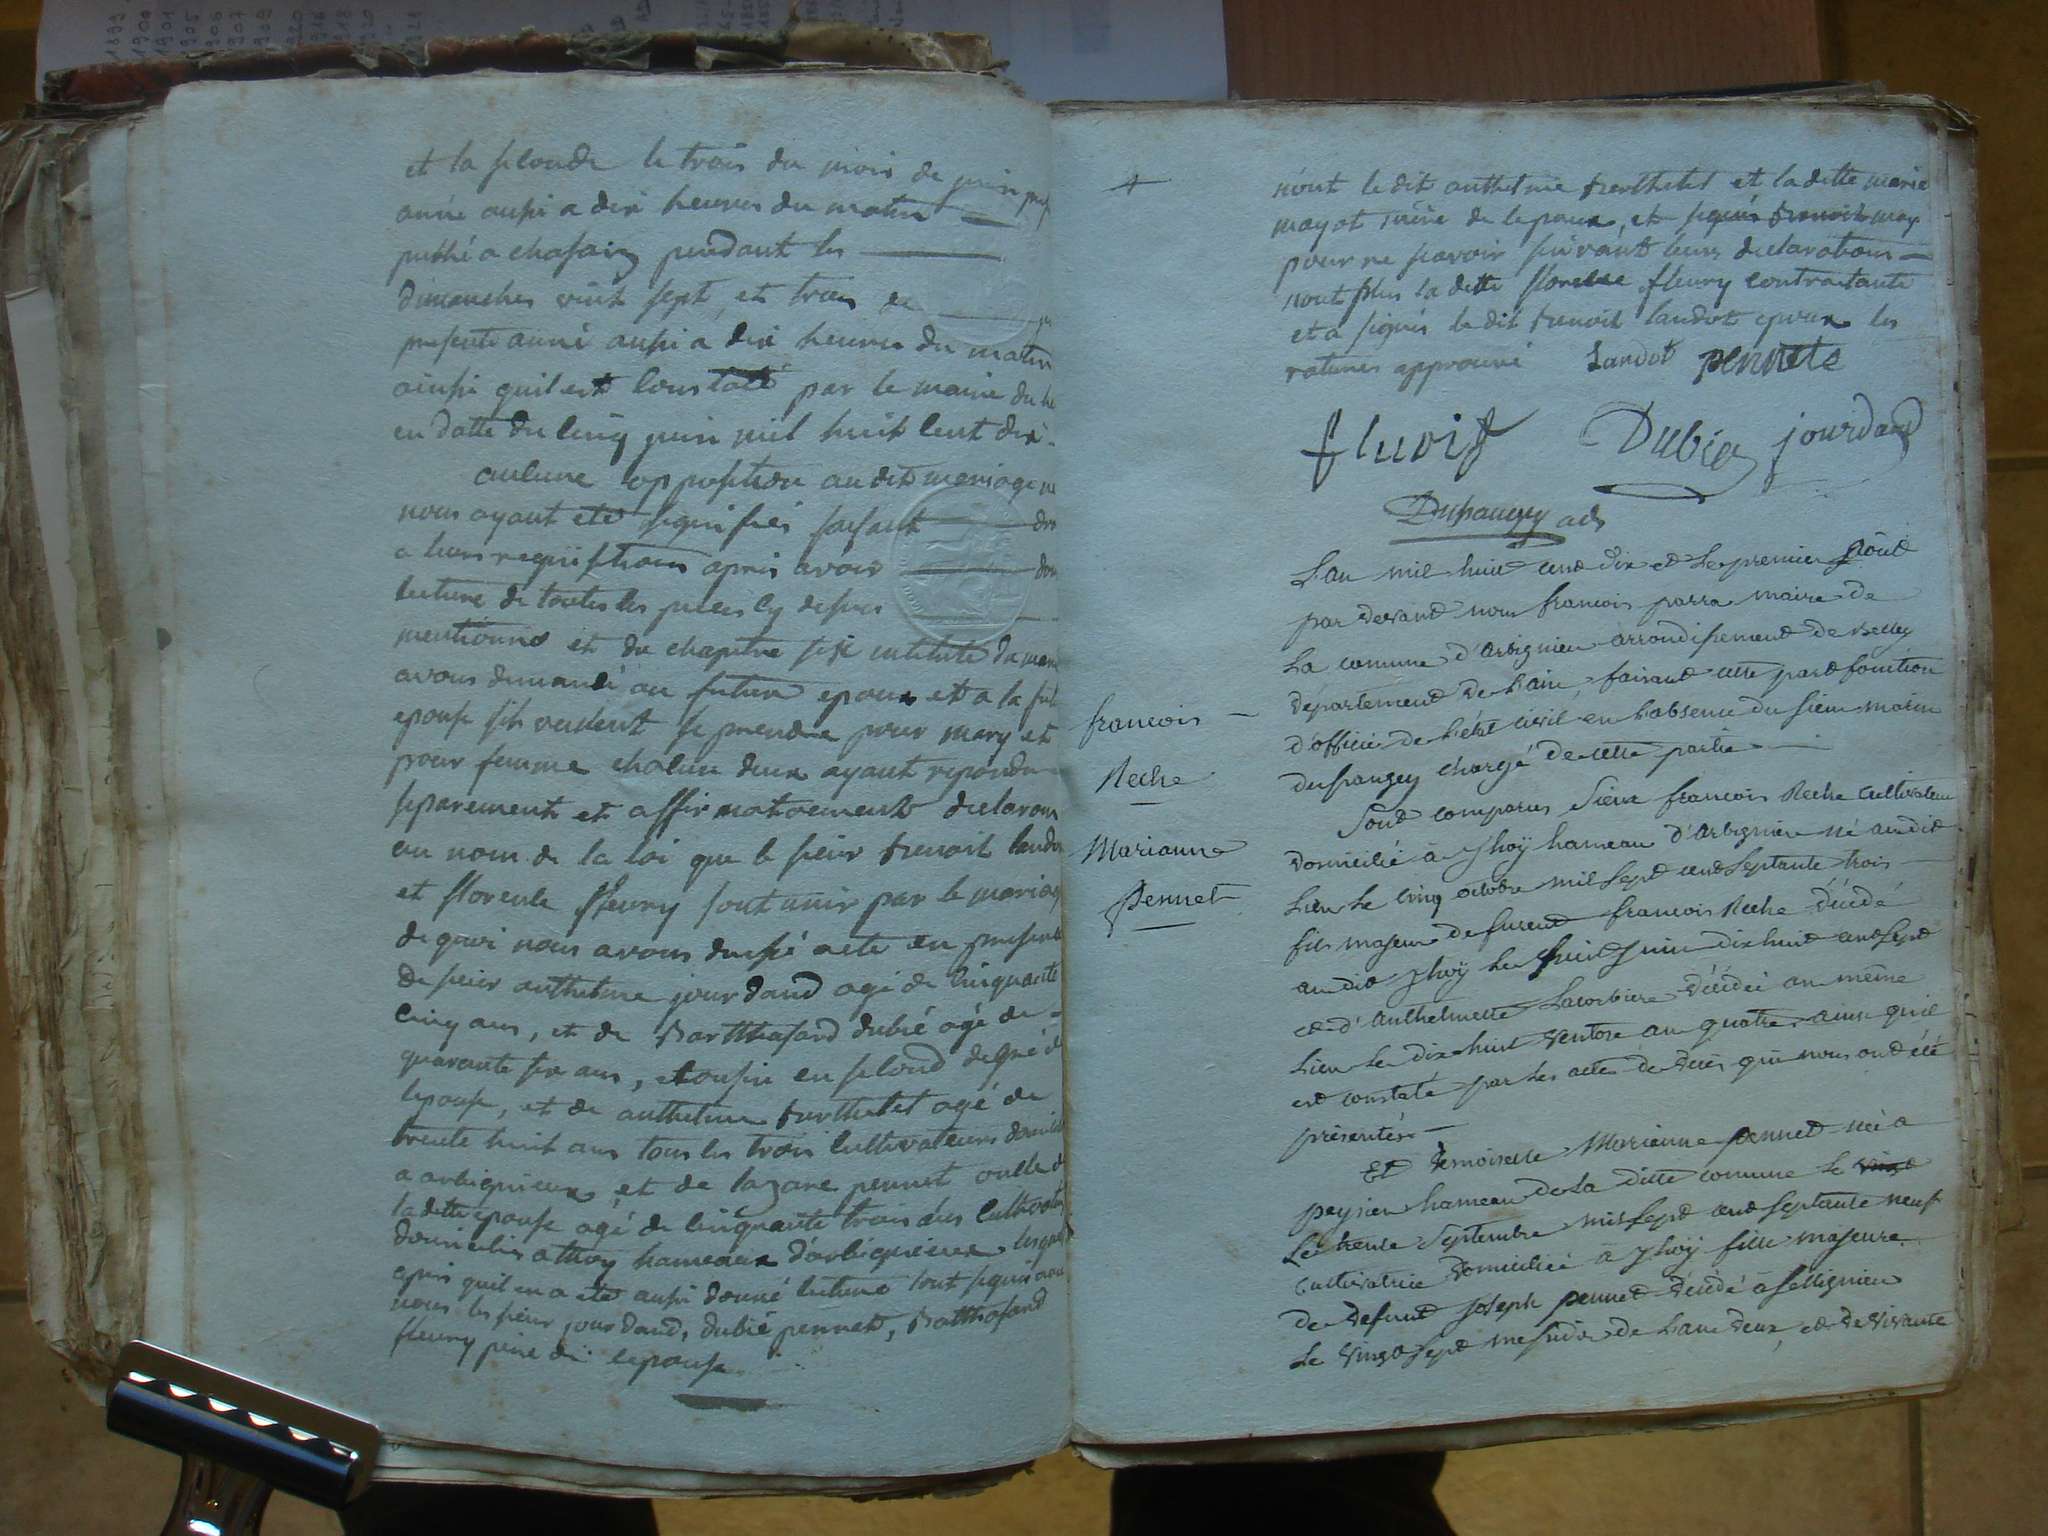 et la seconde le trois du mois de juin
année aussi a dix heures du matin
publié a chasain pendant les
dimanches vint sept, et trois
presente anné aussi a dix heures du matin
ainsi quil est constaté par le maire du
en datte du cinq juin mil huit cent dix
aucune opposition au dit mariage ne
nous ayant ete signifiés faisant
a leurs requisitions apres avoir
lecture de toutes les pieces cy dessus
mentionné et du chapitre six intitulé du
avons demandé au futur epoux et a la
epouse sils veulent se prendre pour mary et
pour femme chacun deux ayant repondu
separement et affirmativement declarons
au nom de la loi que le sieur benoit landot
et florence fleury sont unis par le mariage
de quoi nous avons dressé acte en presence
de sieur anthelme jourdand agé de cinquante
cinq ans, et de Batthasard dubié agé de
quarante six ans, cousin en second degré de
lepouse, et de anthelme berthelet agé de
trente huit ans tous les trois cultivateurs
a arbignieux, et de lazare pennet oncle de
la dette epouse agé de cinquante trois ans cultivateur
domicilies a thoy hameaux d'arbignieux
apres quil en a ete aussi donné lecture ont signé
nous les sieur jourdand, dubié pennet, Batthasard
fleury pere de lepouse
n'ont le dit anthelme berthelet et la dette marie
mayot mère de lepoux, et
pour ne scavoir suivant leurs declarations
non plus la dette florence fleury contraitante
et a signés le dit benoit landot epoux les
ratures approuvé Landot pennete
fluvis Dubie jourdand
Dupaugey adj
L'an mil huit cent dix et le premier Août
par devant nous francois parra maire de
La comune d'Arbignieu arrondissement de Belley
département de L'ain, faisant cette part fonction
d'officié de L'état civil en L'absence du sieur
dupaugey chargé de cette partie
Sont comparus Sieur francois Reche cultivateur
Domicilié à Yhoÿ hameau d'Arbignieu né au dit
Lieu Le cinq octobre mil sept cent septante trois
fils majeur de furent francois Reche décédé
au dit Yhoÿ Le huit Juin dix huit cent sept
et d'Anthelmette Lacorbiere décédée au même
Lieu Le dix huit Ventose an quatre ainsi qu'il
est constaté par les actes de décès qui nous ont été
présentés
Et Demoiselle Marianne pennet née a
peyzieu hameau de La ditte comune Le
Le trente Septembre mil sept cent septante neuf
Cultivatrice domiciliée à Yhoÿ fille majeure
de defunt Joseph pennet décédé à Sellignieu
Le vingt sept messidor de L'an deux, et de vivante
francois
Reche
Marianne
Pennet